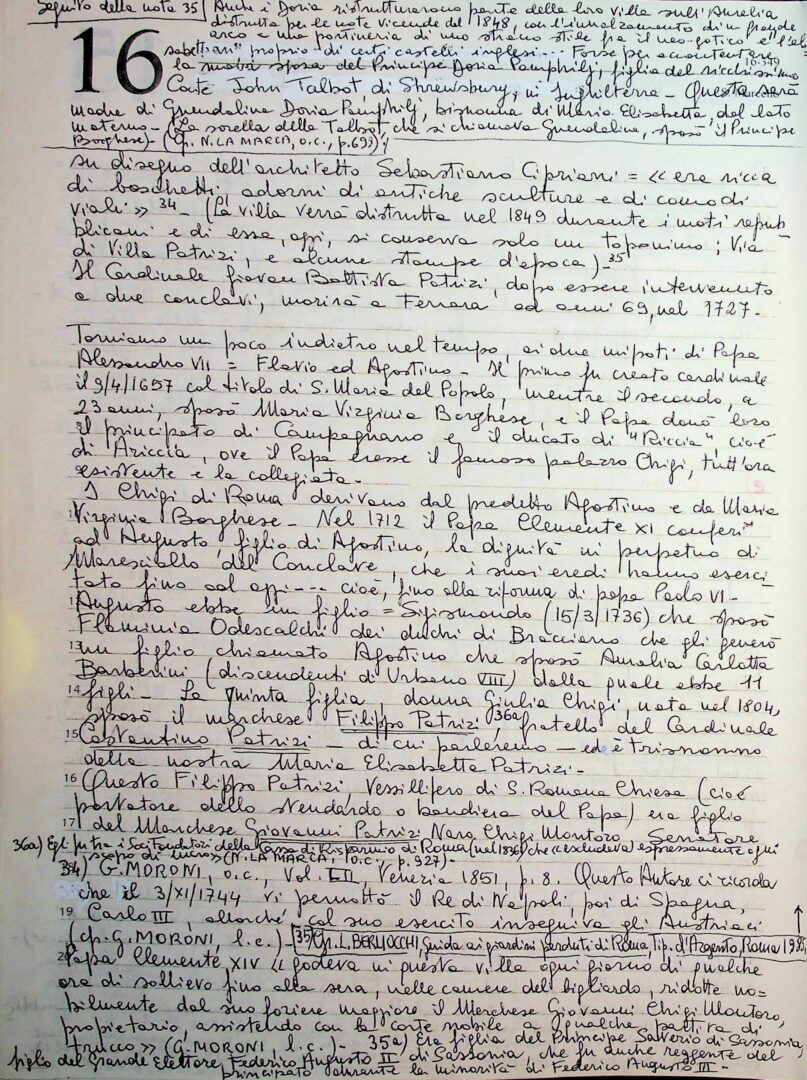 Seguito della nota 35) Anche i Doria ristrutturarono parte della loro villa sull'Aurelia
distrutta per le note vicende del 1848, con l'innalzamento di un grande
arco e una portineria di uno strano stile fra il neo-gotico e l'eli
16
sabettiano" proprio di certi castelli inglesi... Forse per accontentare
la nuova sposa del Principe Doria Pamphilj, figlia del ricchissimo
Conte John Talbot di Shrewsbury, in Inghilterra - Questa sarà
madre di Guendalina Doria Pamphilj, bisnonna di Maria Elisabetta, dal lato
materno - (La sorella della Talbot, che si chiamava Guendalina, sposò il Principe
Borghese) - (Cfr. N. LA MARCA, o.c., p. 693)
su disegno dell'architetto Sebastiano Cipriani = « era ricca
di boschetti, adorni di antiche sculture e di comodi
viali » 34 - (La villa verrà distrutta nel 1849 durante i moti repub
blicani e di essa, oggi, si conserva solo un toponimo: Via
di Villa Patrizi, e alcune stampe d'epoca) - 35
Il Cardinale Giovan Battista Patrizi, dopo essere intervenuto
a due conclavi, morirà a Ferrara ad anni 69, nel 1727 -
Torniamo un poco indietro nel tempo, ai due nipoti di Papa
Alessandro VII = Flavio ed Agostino - Il primo fu creato cardinale
il 9/4/1657 col titolo di S. Maria del Popolo, mentre il secondo, a
23 anni, sposò Maria Virginia Borghese, e il Papa donò loro
il principato di Campagnano e il ducato di "Riccia", cioè
di Ariccia, ove il Papa eresse il famoso palazzo Chigi, tutt'ora
esistente e la collegiata -
I Chigi di Roma derivano dal predetto Agostino e da Maria
Virginia Borghese - Nel 1712 il Papa Clemente XI conferì
ad Augusto, figlio di Agostino, la dignità in perpetuo di
Maresciallo del Conclave, che i suoi eredi hanno eserci
tato fino ad oggi --- cioè, fino alla riforma di papa Paolo VI -
Augusto ebbe un figlio = Sigismondo (15/3/1736) che sposò
Flaminia Odescalchi dei duchi di Bracciano che gli generò
13 un figlio chiamato Agostino che sposò Amalia Carlotta
Barberini (discendenti di Urbano VIII) dalla quale ebbe 11
14 figli - La quinta figlia, donna Giulia Chigi, nata nel 1804,
sposò il marchese Filippo Patrizi, 36a fratello del Cardinale
15 Costantino Patrizi - di cui parleremo - ed è trisnonno
della nostra Maria Elisabetta Patrizi -
16 Questo Filippo Patrizi, Vessillifero di S. Romana Chiesa (cioè
portatore dello stendardo o bandiera del Papa) era figlio
17 del Marchese Giovanni Patrizi Naro Chigi Montoro Senatore
36a) Egli fu tra i Soci fondatori della Cassa di Risparmio di Roma (nel 1836) che «escludeva espressamente ogni
scopo di lucro» (N. LA MARCA, o.c., p. 927) -
34) G. MORONI, o.c., Vol. LII, Venezia 1851, p. 8. Questo Autore ci ricorda
che il 3/XI/1744 vi pernottò il Re di Napoli, poi di Spagna,
19 Carlo III, allorché col suo esercito inseguiva gli Austriaci
(cfr. G. MORONI, l.c.) - 35) Cfr. L. BERLIOCCHI, Guida ai giardini perduti di Roma, Tip. d'Argento, Roma 1985,
20 Papa Clemente XIV « godeva in questa villa ogni giorno di qualche
ora di sollievo fino alla sera, nelle camere del bigliardo, ridotte no=
bilmente dal suo foriere maggiore il Marchese Giovanni Chigi Montoro,
proprietario, assistendo con la corte nobile a qualche partita di
trucco » (G. MORONI, l.c.) - 35a) Era figlia del Principe Saverio di Sassonia,
figlio del Grande Elettore Federico Augusto II di Sassonia, che fu anche reggente del
principato durante la minorità di Federico Augusto III -